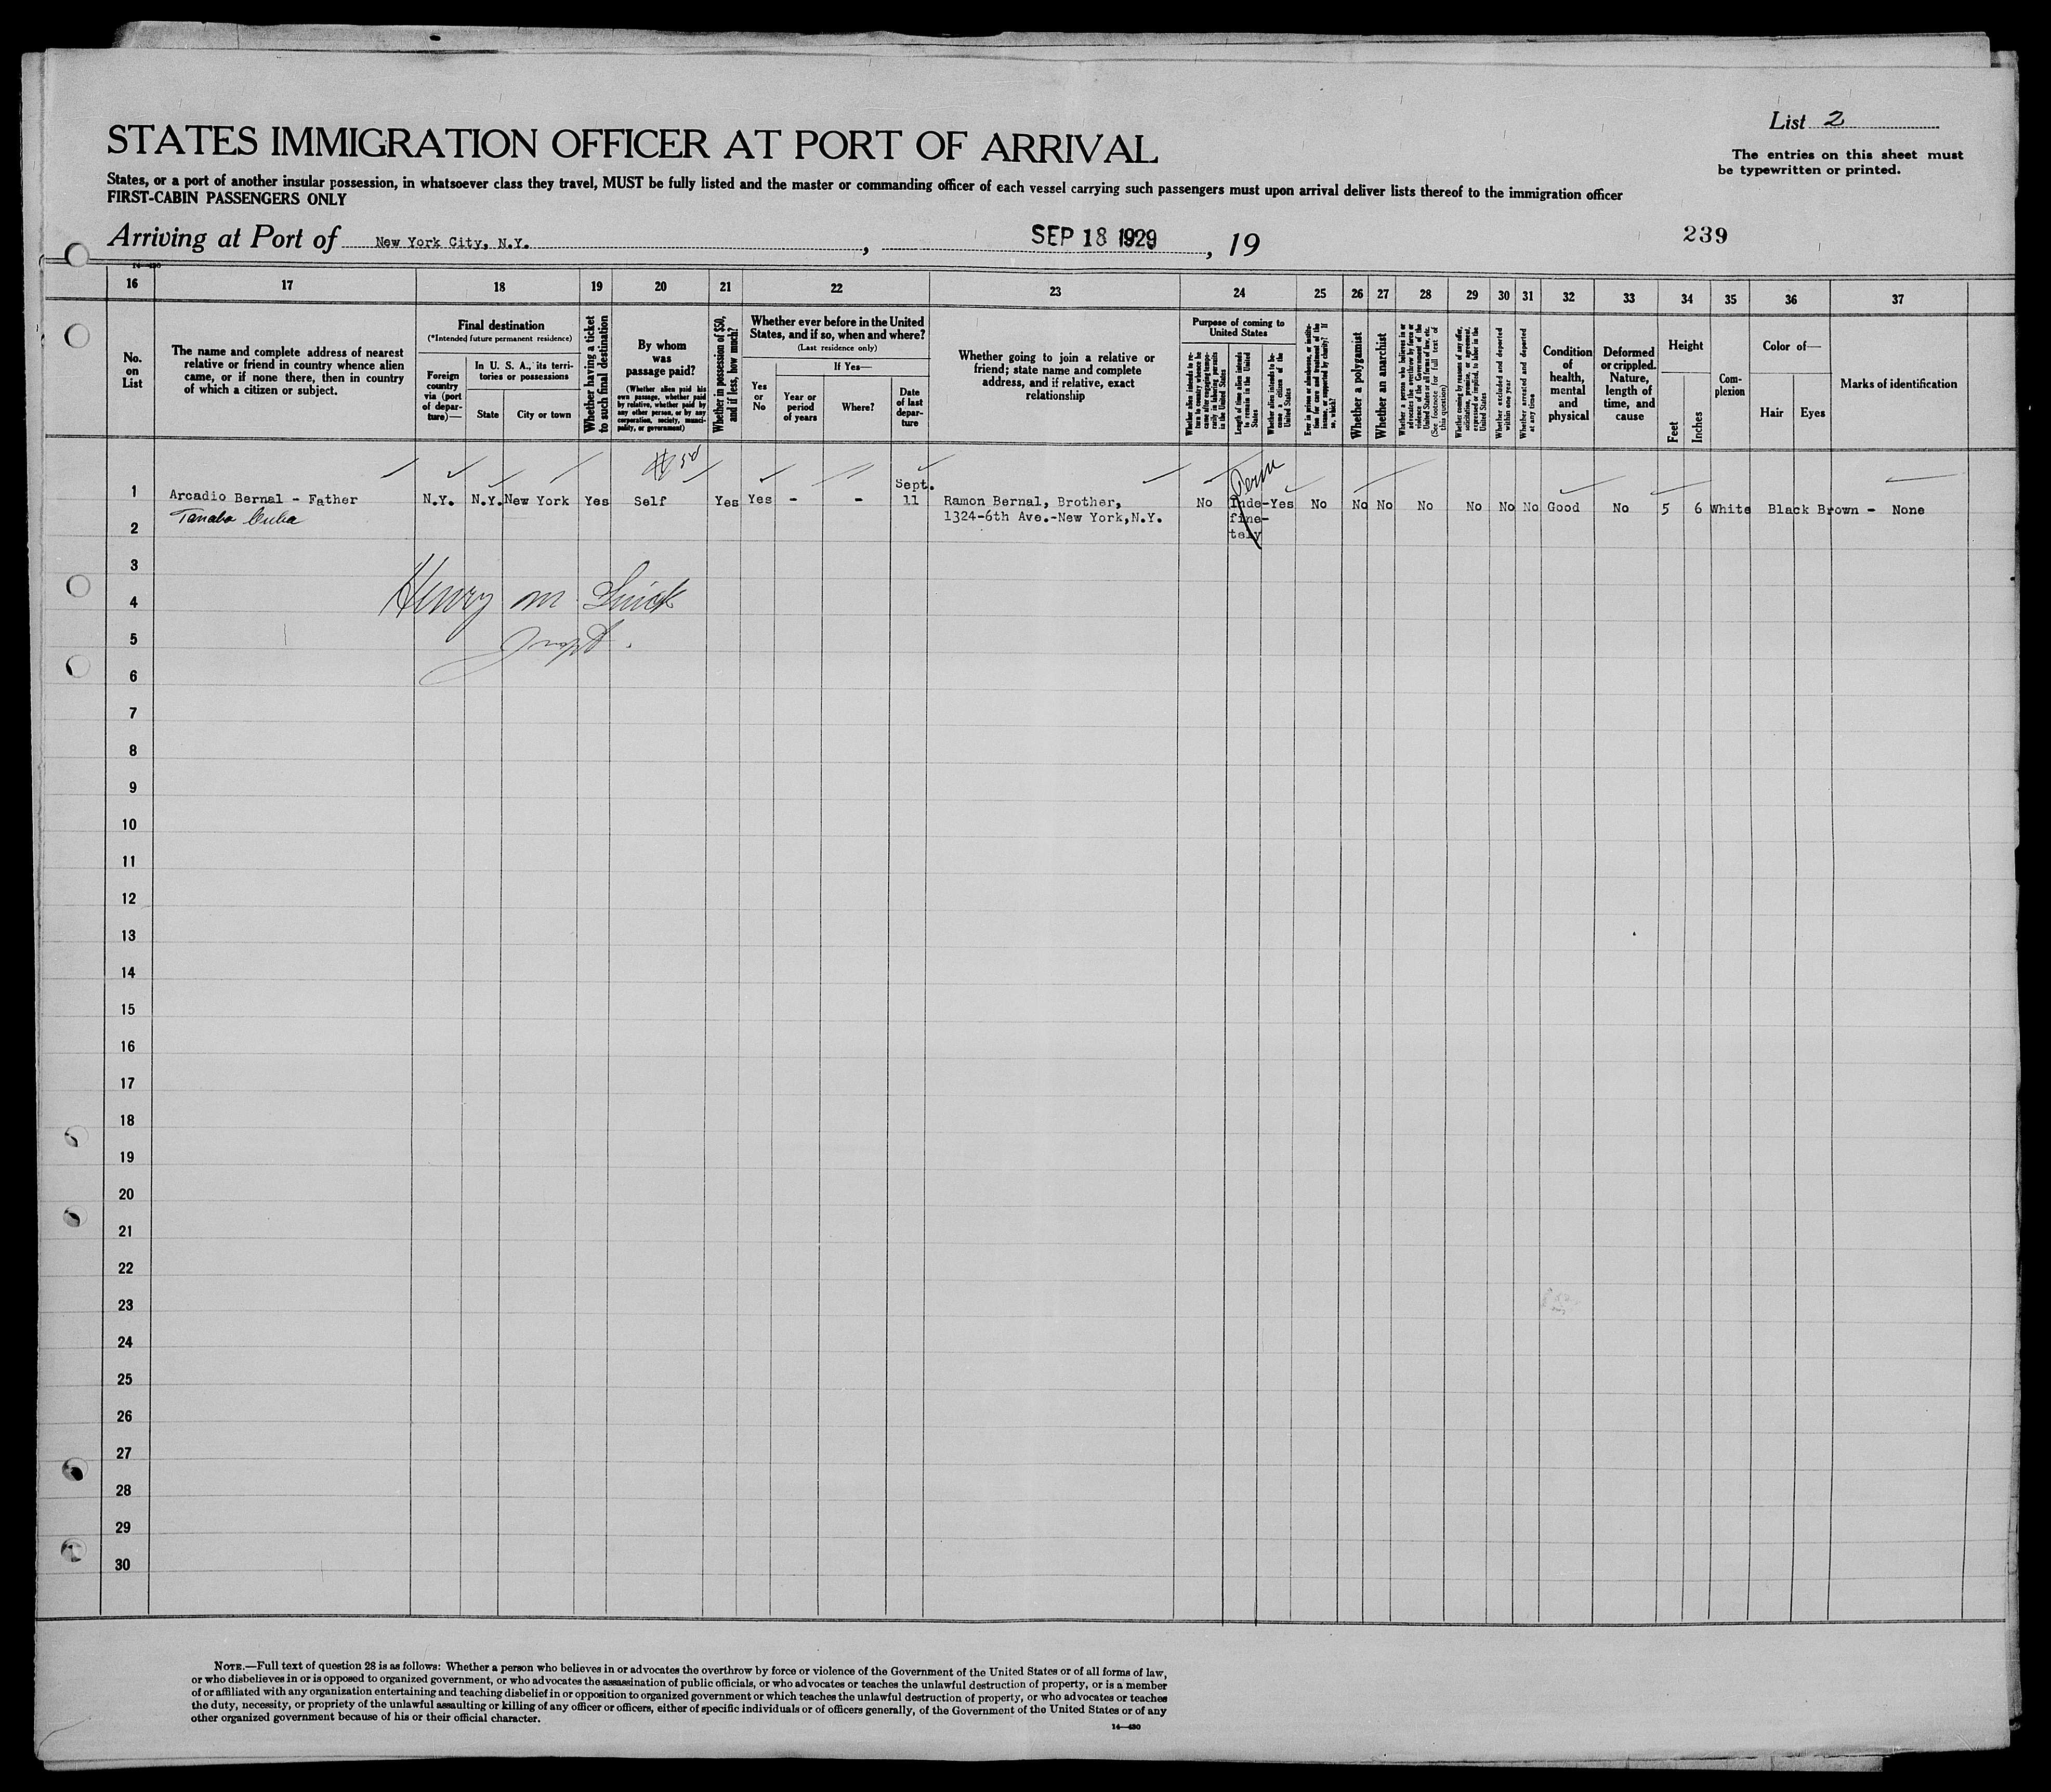 List 2
STATES IMMIGRATION OFFICER AT PORT OF ARRIVAL
The entries on this sheet must
be typewritten or printed.
States, or a port of another insular possession, in whatsoever class they travel, MUST be fully listed and the master or commanding officer of each vessel carrying such passengers must upon arrival deliver lists thereof to the immigration officer
FIRST-CABIN PASSENGERS ONLY
Arriving at Port of New York City, N.Y. , SEP 18 1929 , 19
239
14—430
16 17 18 19 20 21 22 23 24 25 26 27 28 29 30 31 32 33 34 35 36 37
No.
on
List
The name and complete address of nearest
relative or friend in country whence alien
came, or if none there, then in country
of which a citizen or subject.
Final destination
(*Intended future permanent residence)
Foreign
country
via (port
of depar-
ture)—
In U. S. A., its terri-
tories or possessions
State
City or town
Whether having a ticket
to such final destination
By whom
was
passage paid?
(Whether alien paid his
own passage, whether paid
by relative, whether paid by
any other person, or by any
corporation, society, munici-
pality, or government)
Whether in possession of $50,
and if less, how much?
Whether ever before in the United
States, and if so, when and where?
(Last residence only)
Yes
or
No
If Yes—
Year or
period
of years
Where?
Date
of last
depar-
ture
Whether going to join a relative or
friend; state name and complete
address, and if relative, exact
relationship
Purpose of coming to
United States
Whether alien intends to re-
turn to country whence he
came after engaging tempo-
rarily in laboring pursuits
in the United States
Length of time alien intends
to remain in the United
States
Whether alien intends to be-
come a citizen of the
United States
Ever in prison or almshouse, or institu-
tion for care and treatment of the
insane, or supported by charity? If
so, which?
Whether a polygamist
Whether an anarchist
Whether a person who believes in or
advocates the overthrow by force or
violence of the Government of the
United States or all forms of law, etc.
(See footnote for full text of
this question)
Whether coming by reason of any offer,
solicitation, promise, or agreement,
expressed or implied, to labor in the
United States
Whether excluded and deported
within one year
Whether arrested and deported
at any time
Condition
of
health,
mental
and
physical
Deformed
or crippled.
Nature,
length of
time, and
cause
Height
Feet
Inches
Com-
plexion
Color of—
Hair
Eyes
Marks of identification
Perm
Sept.
1 Arcadio Bernal - Father N.Y. N.Y. New York Yes Self Yes Yes - - 11 Ramon Bernal, Brother, No Inde- Yes No No No No No No No Good No 5 6 White Black Brown - None
Cuba 1324-6th Ave.-New York,N.Y. fine-
2 tely
3
Henry M
4
5
Inspt.
6
7
8
9
10
11
12
13
14
15
16
17
18
19
20
21
22
23
24
25
26
27
28
29
30
NOTE.—Full text of question 28 is as follows: Whether a person who believes in or advocates the overthrow by force or violence of the Government of the United States or of all forms of law,
or who disbelieves in or is opposed to organized government, or who advocates the assassination of public officials, or who advocates or teaches the unlawful destruction of property, or is a member
of or affiliated with any organization entertaining and teaching disbelief in or opposition to organized government or which teaches the unlawful destruction of property, or who advocates or teaches
the duty, necessity, or propriety of the unlawful assaulting or killing of any officer or officers, either of specific individuals or of officers generally, of the Government of the United States or of any
other organized government because of his or their official character.
14—430